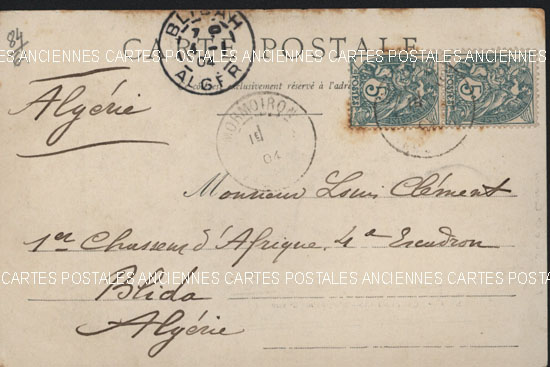 84
CARTE POSTALE
BLIDAH
ALGER
exclusivement réservé à l'adresse
Algérie
MORMOIRON
04
5 5
Monsieur Louis Clément
1er Chasseurs d'Afrique. 4e Escadron
Blida
Algérie
ANCIENNES CARTES POSTALES ANCIENNES CARTES POSTALES ANCIENNES CARTES POSTALES
ANCIENNES CARTES POSTALES ANCIENNES CARTES POSTALES ANCIENNES CARTES POSTALES